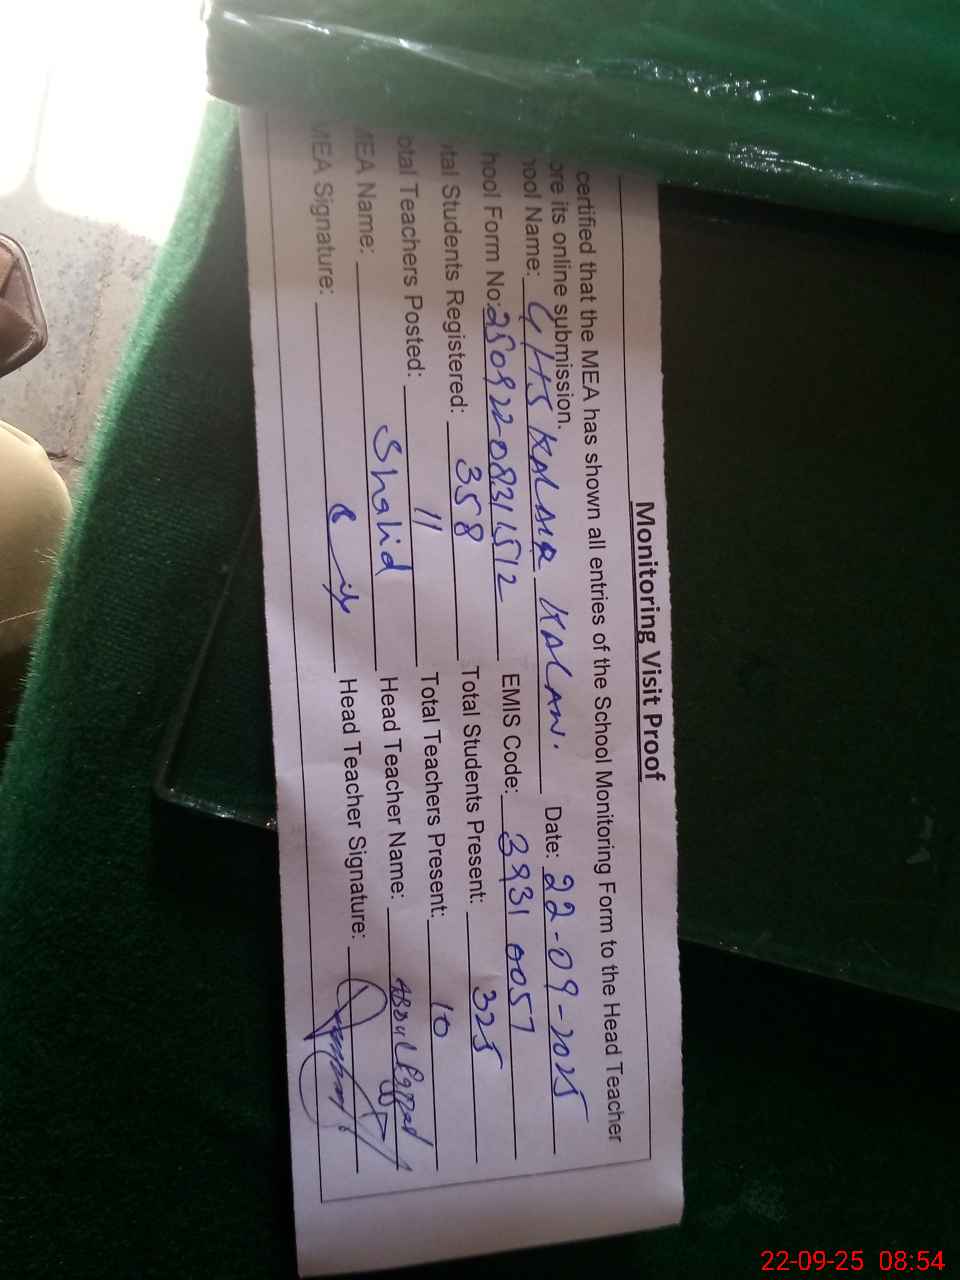 Monitoring Visit Proof
certified that the MEA has shown all entries of the School Monitoring Form to the Head Teacher
ore its online submission.
ool Name: GHS KALAIR KALAN. Date: 22-09-2025
hool Form No: 250922083151512 EMIS Code: 39310057
tal Students Registered: 358 Total Students Present: 325
otal Teachers Posted: 11 Total Teachers Present: 10
MEA Name: Shahid Head Teacher Name: ABDUL
MEA Signature: Head Teacher Signature:
22-09-25 08:54